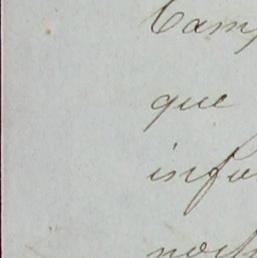 Camp
que
info
noch